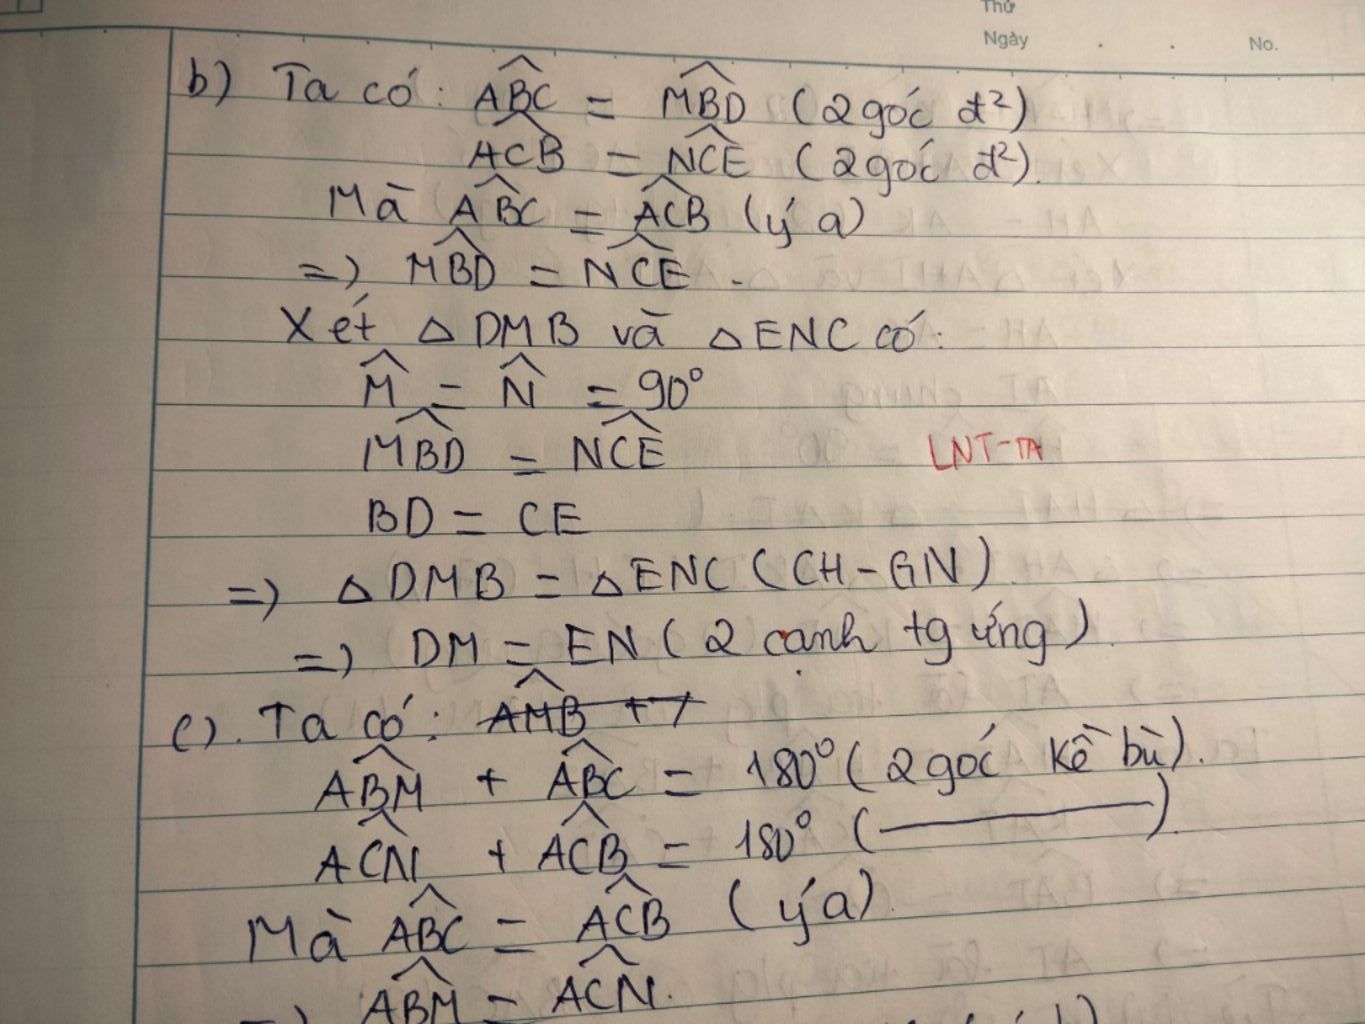 Thứ
Ngày . . No.
b) Ta có: ABC = MBD (2 góc đ²)
ACB = NCE (2 góc đ²).
Mà ABC = ACB (ý a)
=> MBD = NCE.
Xét △ DMB và △ ENC có:
M = N = 90°
MBD = NCE
LNT-TA
BD = CE
=> △ DMB = △ ENC (CH-GN)
=> DM = EN (2 cạnh tg ứng).
c). Ta có: AMB +
ABM + ABC = 180° (2 góc kề bù).
ACN + ACB = 180° (———).
Mà ABC = ACB (ý a).
=> ABM = ACN.